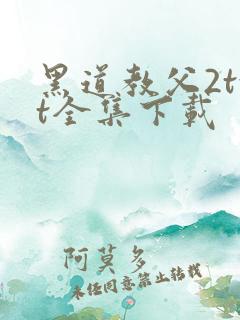 黑道教父2t
t全集下载
阿莫多
未经同意禁止转载